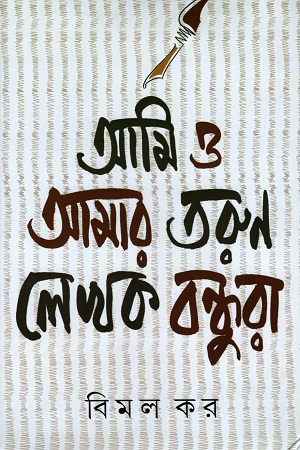 আমি ও
আমার তরুণ
লেখক বন্ধুরা
বিমল কর